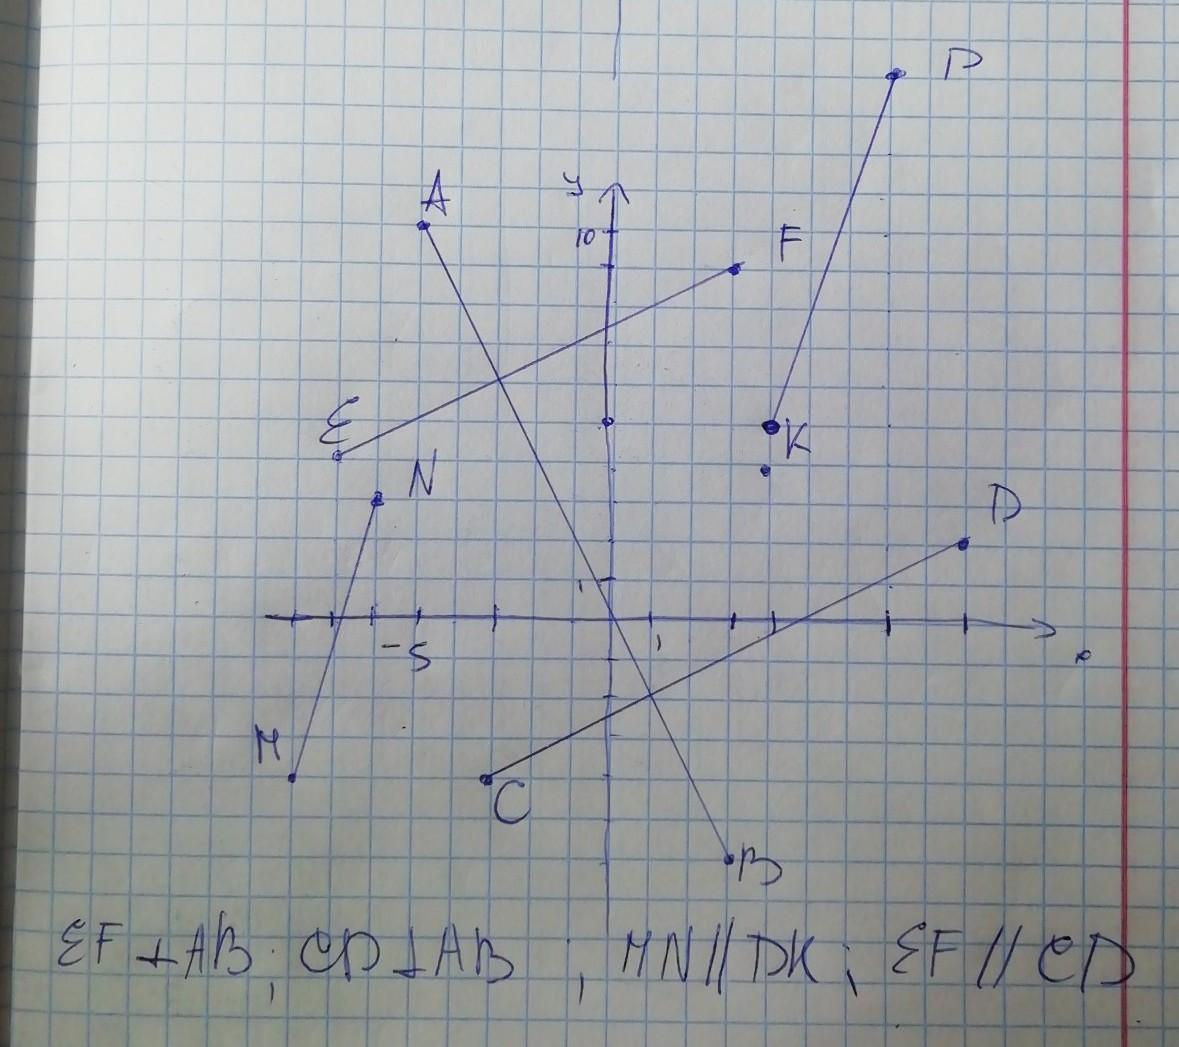 P
A
y
10
F
E
K
N
D
1
-5
1
x
M
C
B
EF ⊥ AB; CD ⊥ AB ; MN // DK; EF // CD